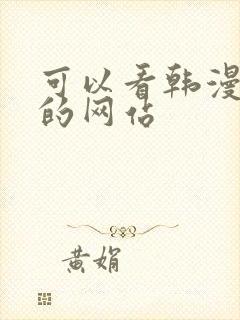 可以看韩漫
的网佔
黄娟